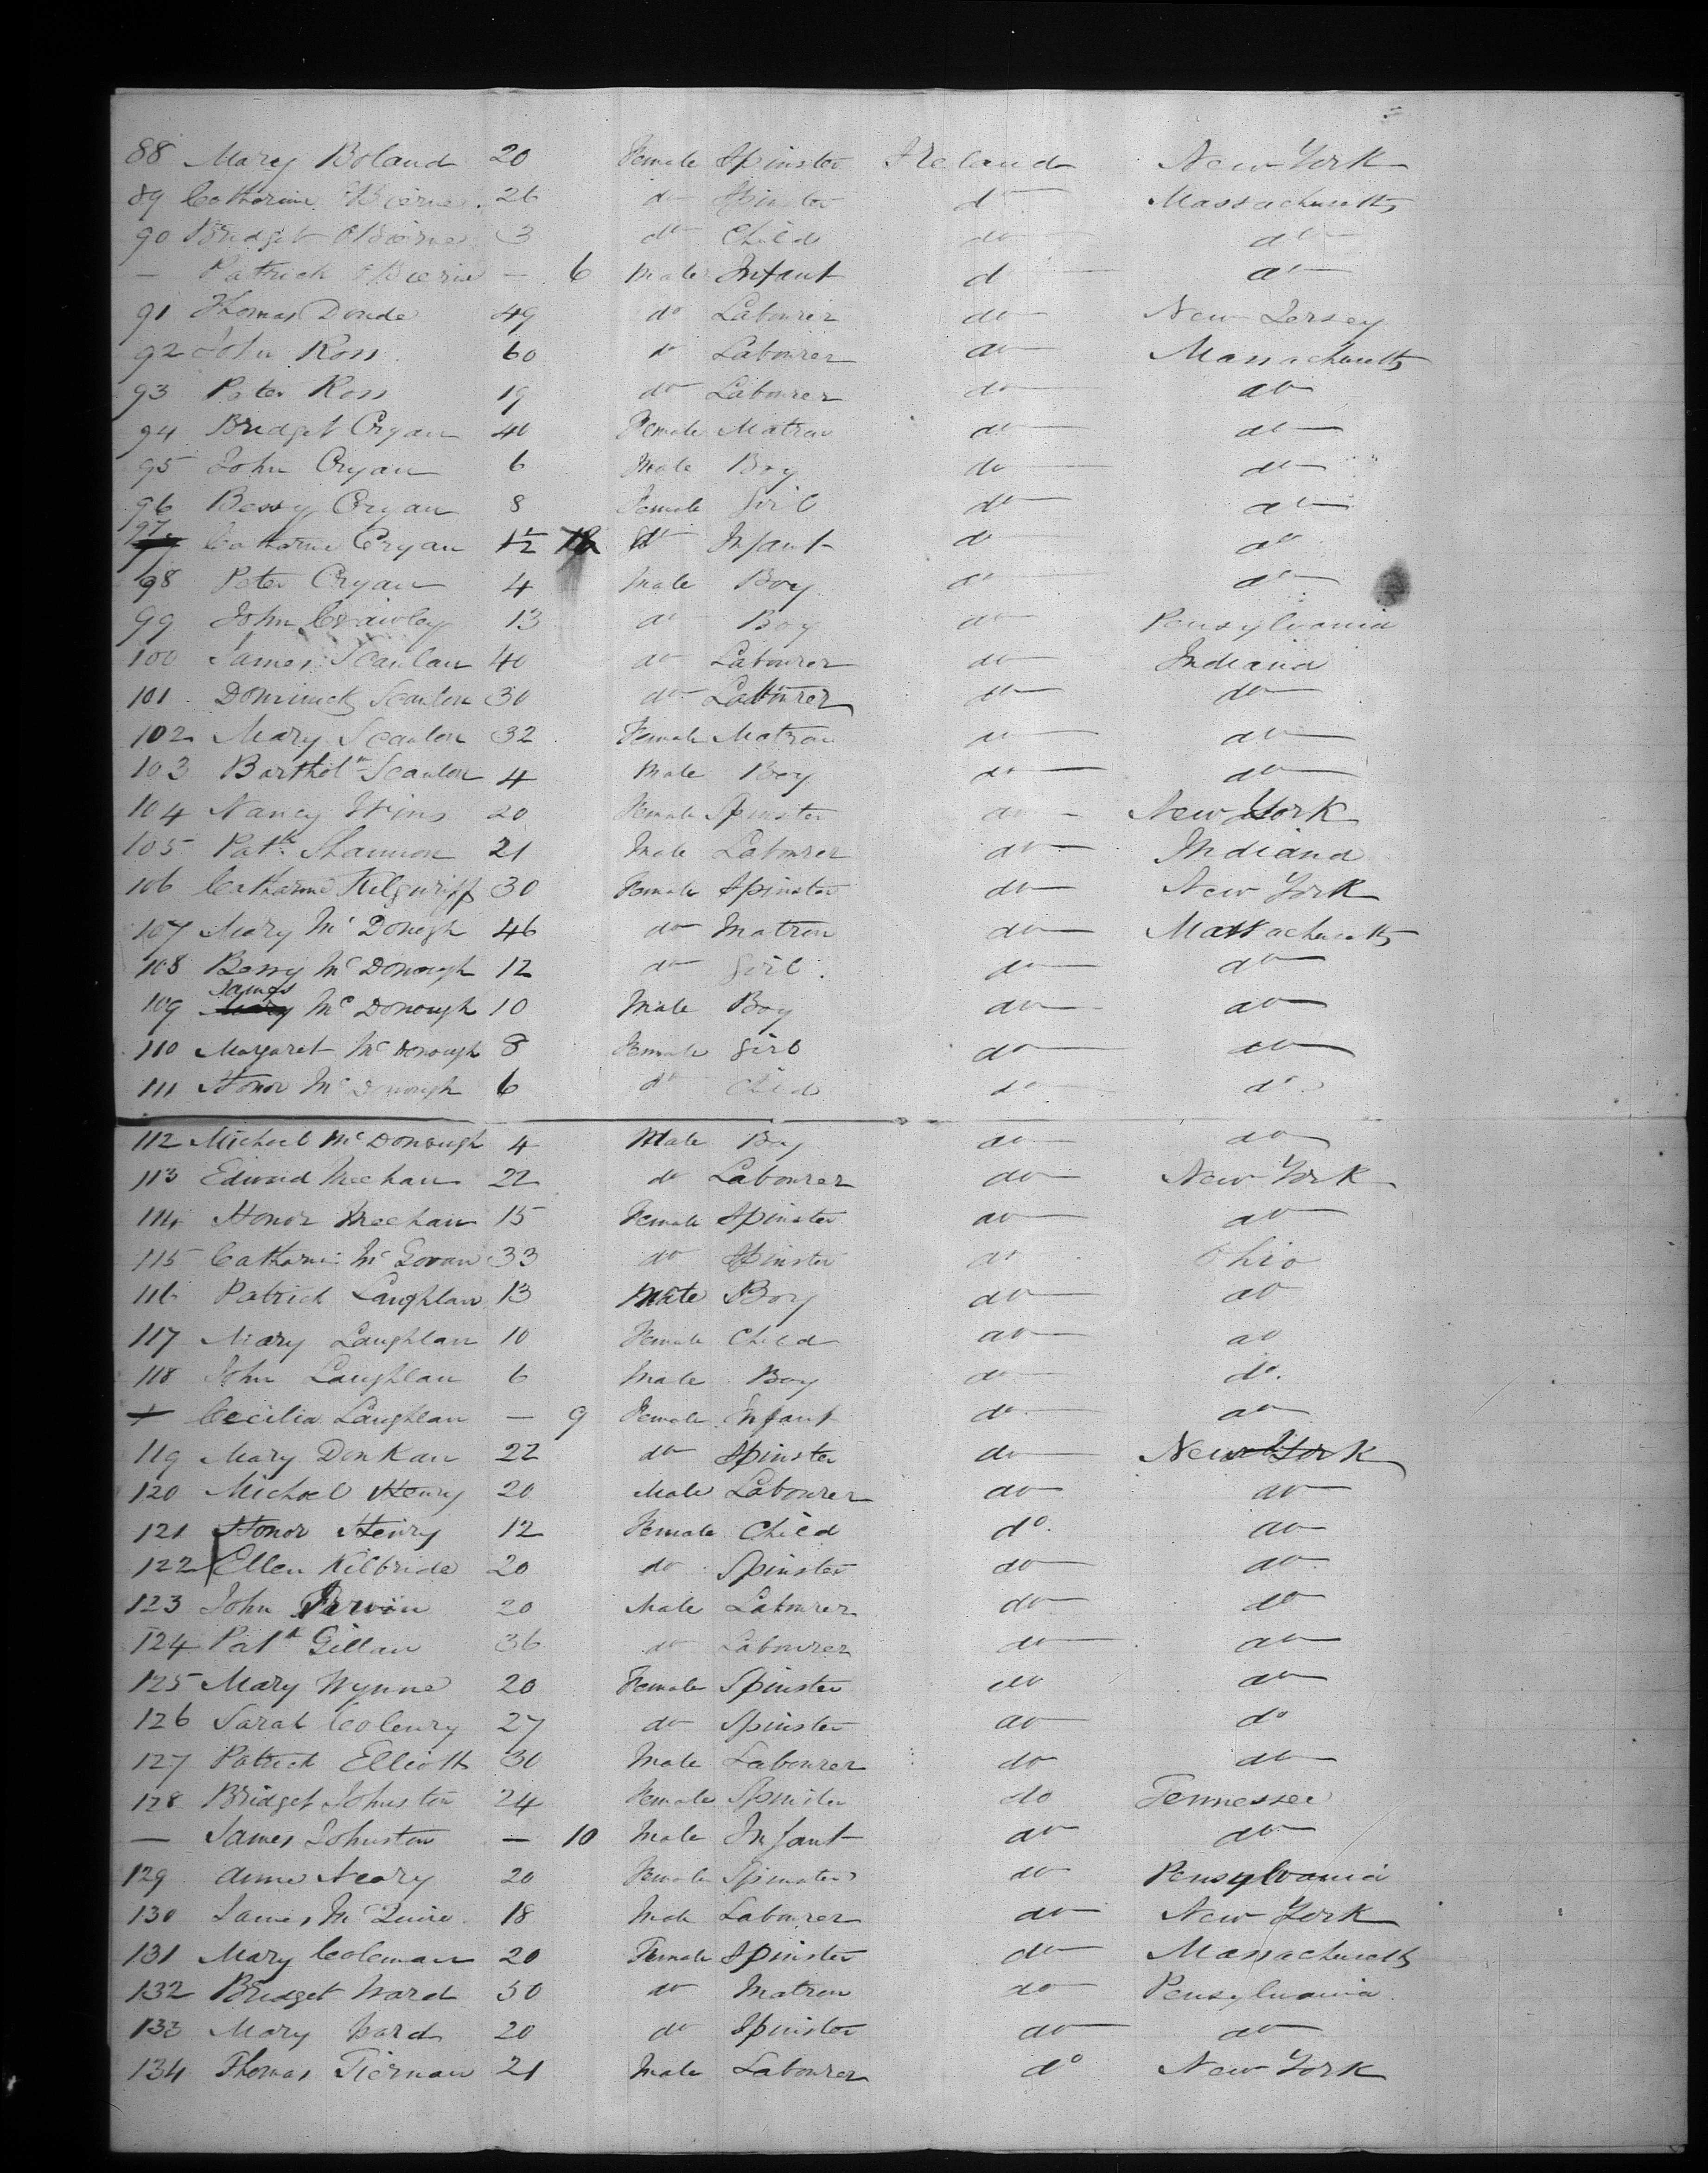 88 Mary Boland 20 Female Spinster Ireland New York
89 Catharine OBierne 26 do Spinster do Massachusetts
90 Bridget OBierne 3 do Child do do
— Patrick OBierne — 6 Male Infant do do
91 Thomas Donde 49 do Labourer do New Jersey
92 John Ross 60 do Labourer do Massachusetts
93 Peter Ross 19 do Labourer do do
94 Bridget Cryan 40 Female Matron do do
95 John Cryan 6 Male Boy do do
96 Bessy Cryan 8 Female Girl do do
97 Catharine Cryan do Infant do do
98 Peter Cryan 4 Male Boy do do
99 John Crawley 13 do Boy do Pensylvania
100 James Scanlan 40 do Labourer do Indiana
101 Dominick Scanlon 30 do Labourer do do
102 Mary Scanlon 32 Female Matron do do
103 Barthol^m Scanlon 4 Male Boy do do
104 Nancy 20 Female Spinster do New York
105 Pat^k Shannon 21 Male Labourer do Indiana
106 Catharine Kilguriff 30 Female Spinster do New York
107 Mary Mc Donogh 46 do Matron do Massachusetts
108 Bessy Mc Donough 12 do Girl do do
109 James Mc Donough 10 Male Boy do do
110 Margaret Mc Donough 8 Female Girl do do
111 Honor Mc Donough 6 do Child do do
112 Micheel Mc Donough 4 Male Boy do do
113 Edward Meehan 22 do Labourer do New York
114 Honor Meehan 15 Female Spinster do do
115 Catharine Mc Govan 33 do Spinster do Ohio
116 Patrick Laughlan 13 Male Boy do do
117 Mary Laughlan 10 Female Child do do
118 John Laughlan 6 Male Boy do do
Cecilia Laughlan — 9 Female Infant do do
119 Mary Donkan 22 do Spinster do New York
120 Michael Henry 20 Male Labourer do do
121 Honor Henry 12 Female Child do do
122 Ellen Kilbride 20 do Spinster do do
123 John 20 Male Labourer do do
124 Pat^k Gillan 36 do Labourer do do
125 Mary Wynne 20 Female Spinster do do
126 Sarah Colenry 27 do Spinster do do
127 Patrick Elliott 30 Male Labourer do do
128 Bridget Johnston 24 Female Spinster do Tennessee
— James Johnston — 10 Male Infant do do
129 Anne Neary 20 Female Spinster do Pensylvania
130 James Mc Quire 18 Male Labourer do New York
131 Mary Coleman 20 Female Spinster do Massachusetts
132 Bridget Ward 50 do Matron do Pensylvania
133 Mary Ward 20 do Spinster do do
134 Thomas Tiernan 21 Male Labourer do New York